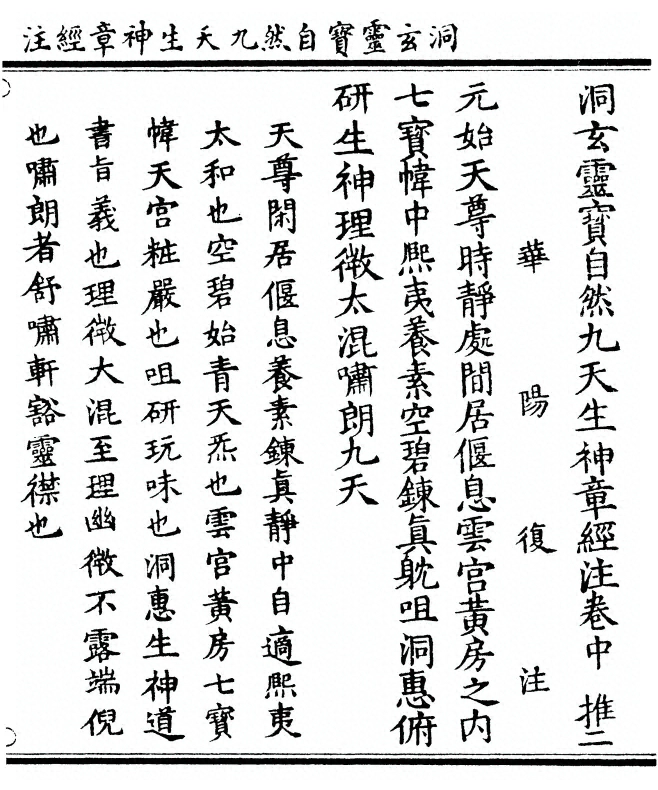 洞玄靈寶自然九天生神章經注
洞玄靈寶自然九天生神章經注卷中 推二
華陽復注
元始天尊時靜處閒居偃息雲宮黃房之內
七寶幃中熙夷養素空碧鍊真躭咀洞惠俯
研生神理微太混嘯朗九天
天尊閑居偃息養素鍊真靜中自適熙夷
太和也空碧始青天炁也雲宮黃房七寶
幃天宮粧嚴也咀研玩味也洞惠生神道
書旨義也理微大混至理幽微不露端倪
也嘯朗者舒嘯軒豁靈襟也